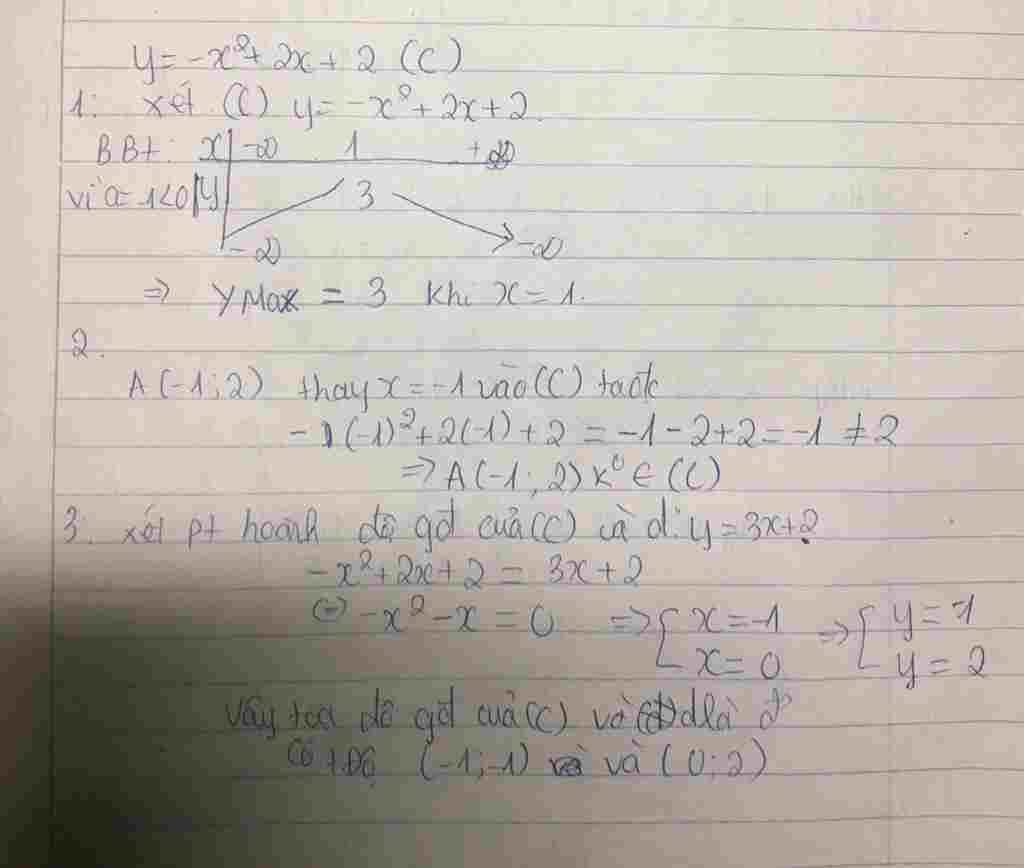 y = -x² + 2x + 2 (C)
1: xét (C) y = -x² + 2x + 2.
BBt: x -∞ 1 +∞
vì a = 1<0 y 3
-∞ -∞
⇒ yMax = 3 khi x = 1.
2.
A(-1; 2) thay x = -1 vào (C) ta đc
-1(-1)² + 2(-1) + 2 = -1 - 2 + 2 = -1 ≠ 2
⇒ A(-1; 2) k⁰ ∈ (C)
3. xét pt hoành độ gđ của (C) và d: y = 3x+2
-x² + 2x + 2 = 3x + 2
(=) -x² - x = 0 ⇒ [ x = -1 ⇒ [ y = -1
x = 0 y = 2
Vậy tọa độ gđ của (C) và d là
có t.Độ (-1; -1) và (0; 2)